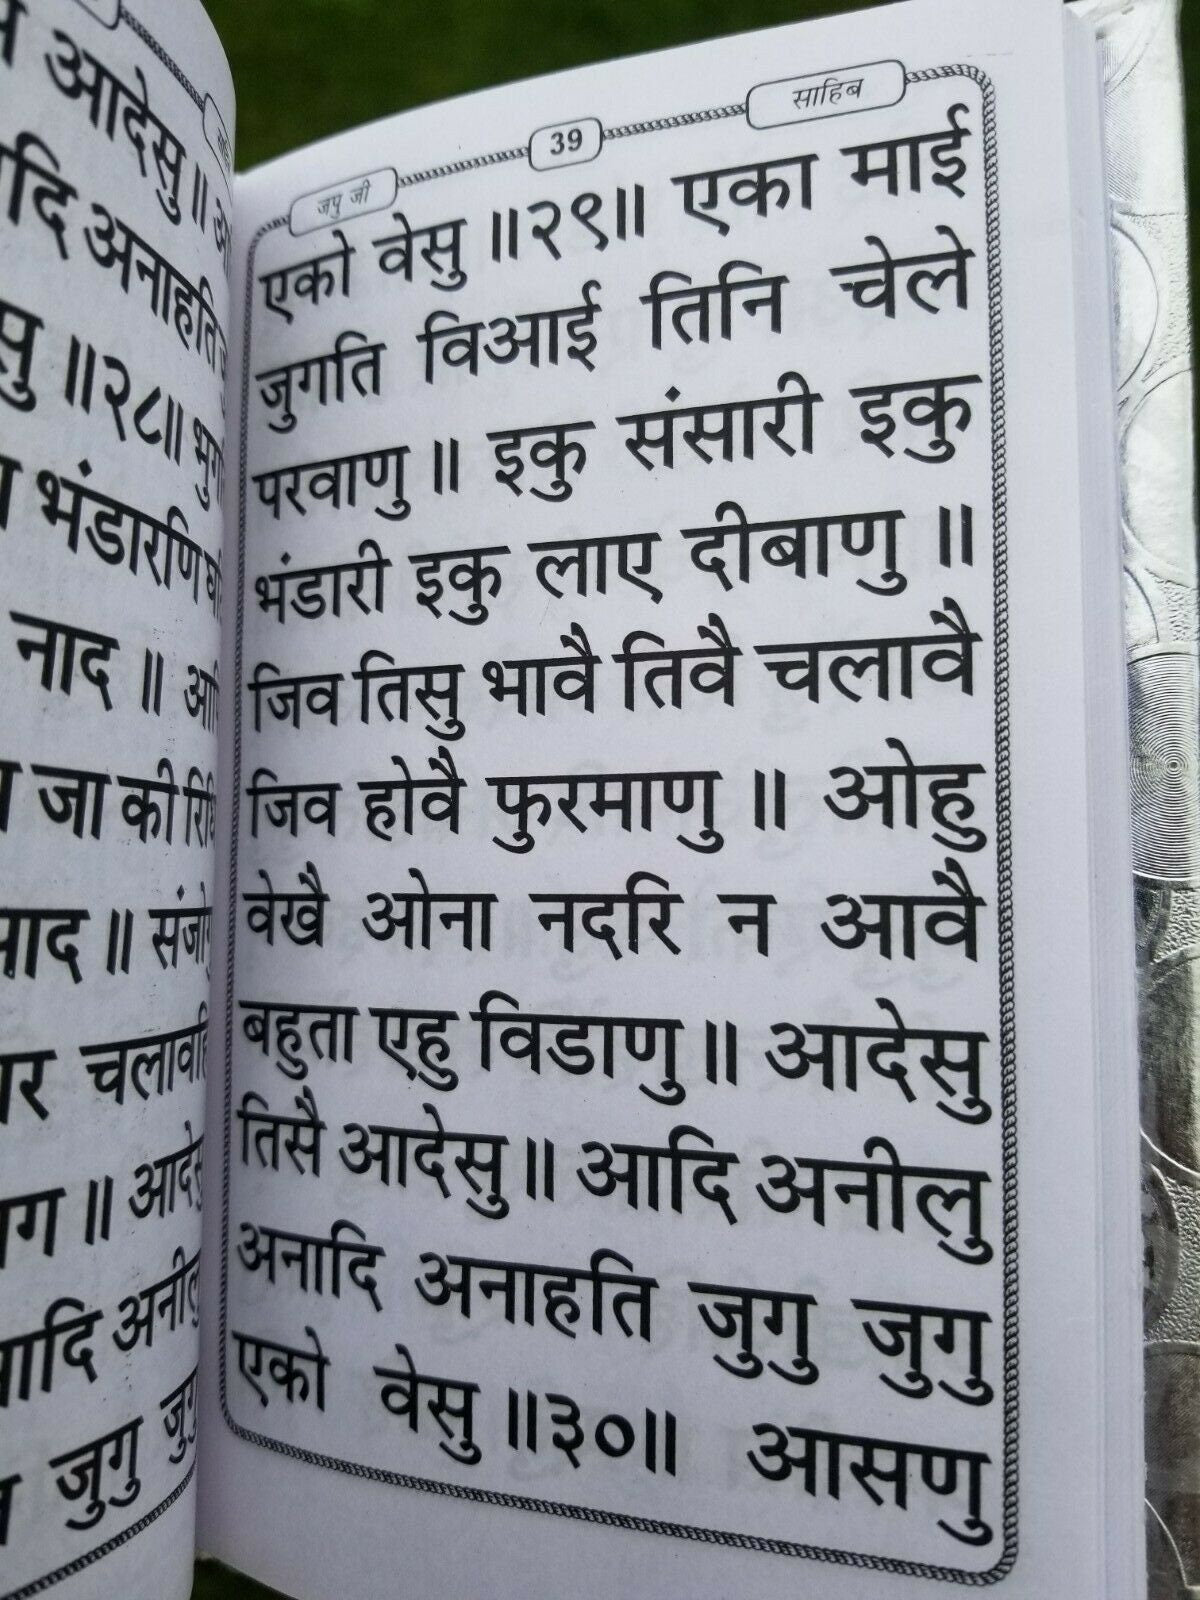 आदेसु ॥
अनाहति
॥२८॥
भंडारणि
नाद ॥
जा की
॥
चलावहि
॥
आदि अनीलु
जुगु
जपु जी 39 साहिब
एको वेसु ॥२९॥ एका माई
जुगति विआई तिनि चेले
परवाणु ॥ इकु संसारी इकु
भंडारी इकु लाए दीबाणु ॥
जिव तिसु भावै तिवै चलावै
जिव होवै फुरमाणु ॥ ओहु
वेखै ओना नदरि न आवै
बहुता एहु विडाणु ॥ आदेसु
तिसै आदेसु ॥ आदि अनीलु
अनादि अनाहति जुगु जुगु
एको वेसु ॥३०॥ आसणु